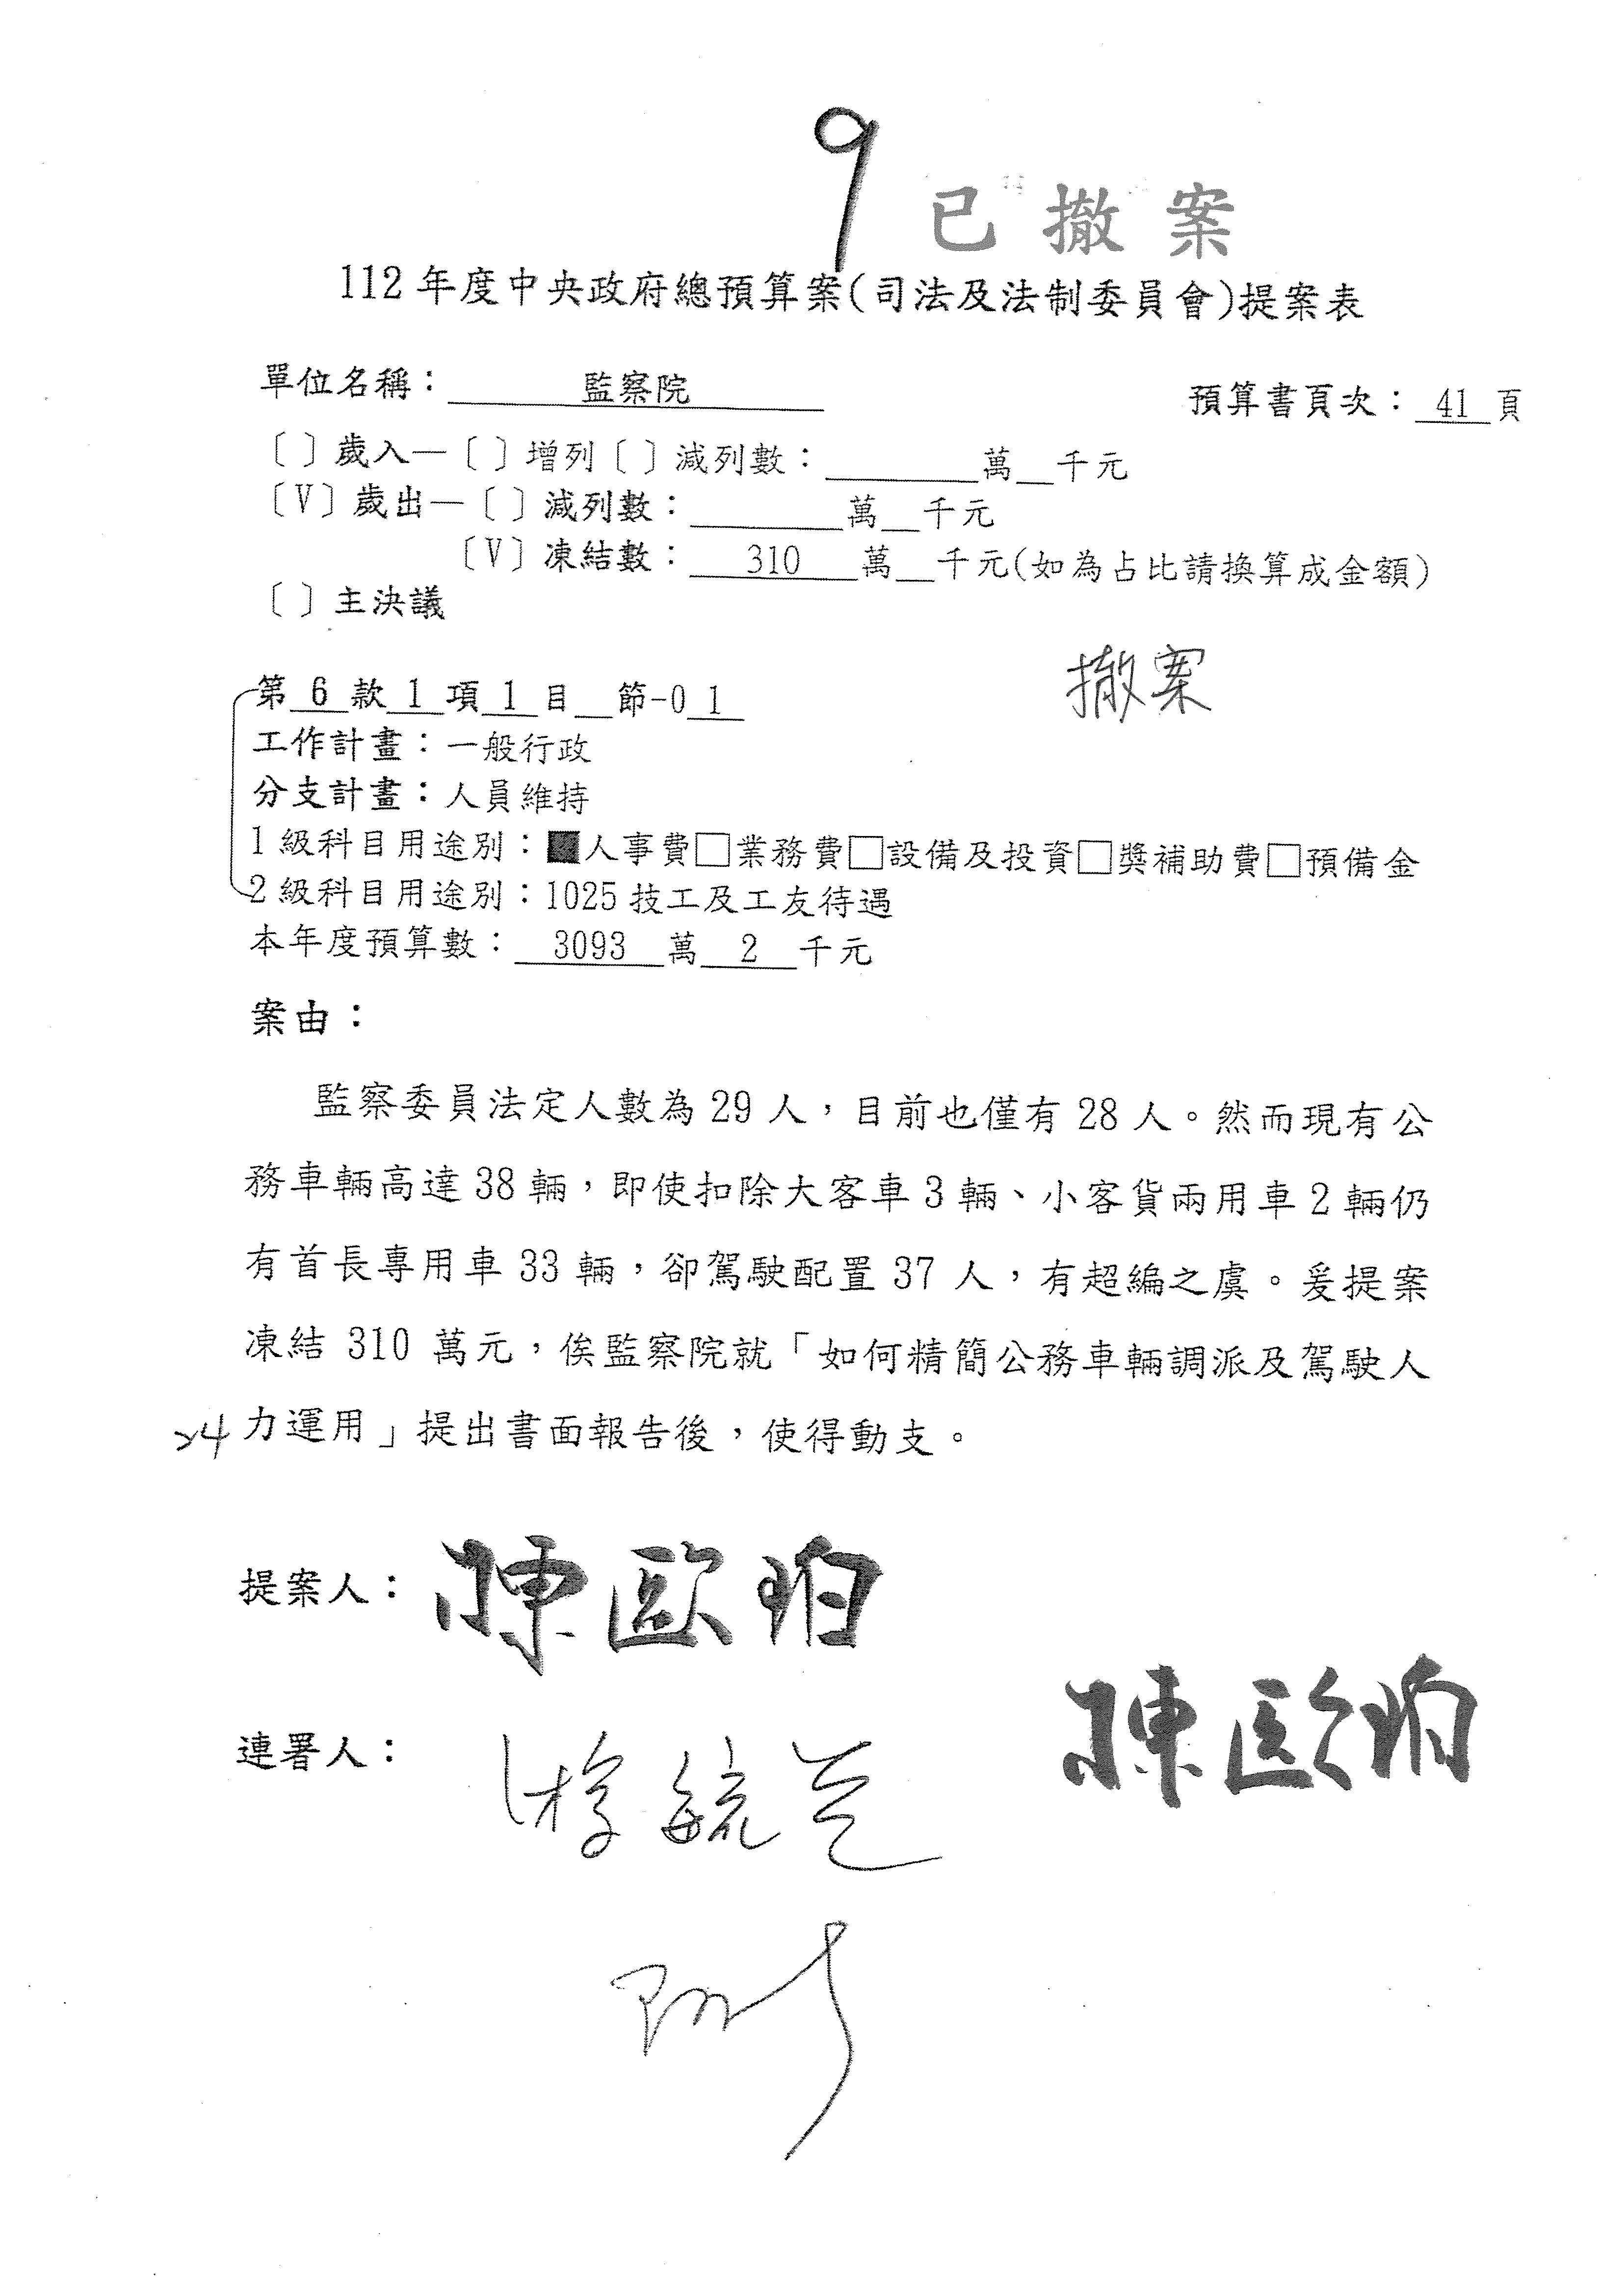 9
已撤案
112年度中央政府總預算案(司法及法制委員會)提案表
單位名稱：監察院 預算書頁次：41頁
〔〕歲入—〔〕增列〔〕減列數：______萬__千元
〔V〕歲出—〔〕減列數：______萬__千元
〔V〕凍結數：310萬__千元(如為占比請換算成金額)
〔〕主決議
撤案
第6款1項1目__節-01
工作計畫：一般行政
分支計畫：人員維持
1級科目用途別：■人事費□業務費□設備及投資□獎補助費□預備金
2級科目用途別：1025技工及工友待遇
本年度預算數：3093萬2千元
案由：
監察委員法定人數為29人，目前也僅有28人。然而現有公
務車輛高達38輛，即使扣除大客車3輛、小客貨兩用車2輛仍
有首長專用車33輛，卻駕駛配置37人，有超編之虞。爰提案
凍結310萬元，俟監察院就「如何精簡公務車輛調派及駕駛人
24 力運用」提出書面報告後，使得動支。
提案人：陳歐珀
陳歐珀
連署人：游毓蘭